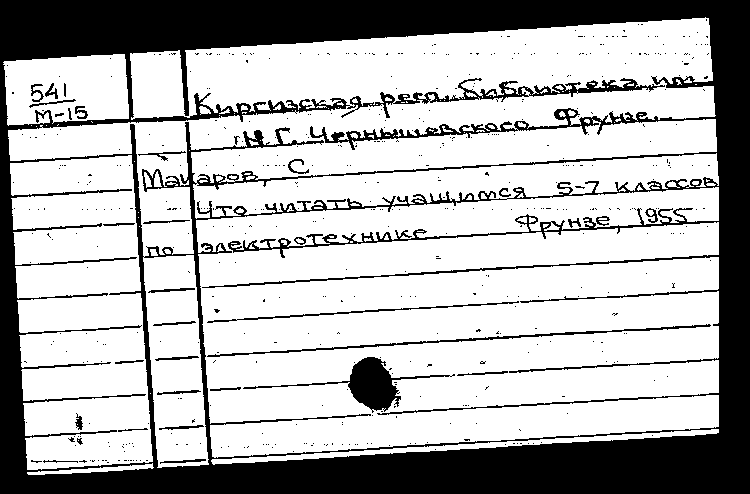 541
М-15
Киргизская респ. библиотека им.
Н.Г. Чернышевского Фрунзе.
Макаров, С
Что читать учащимся 5-7 классов
по электротехнике Фрунзе, 1955